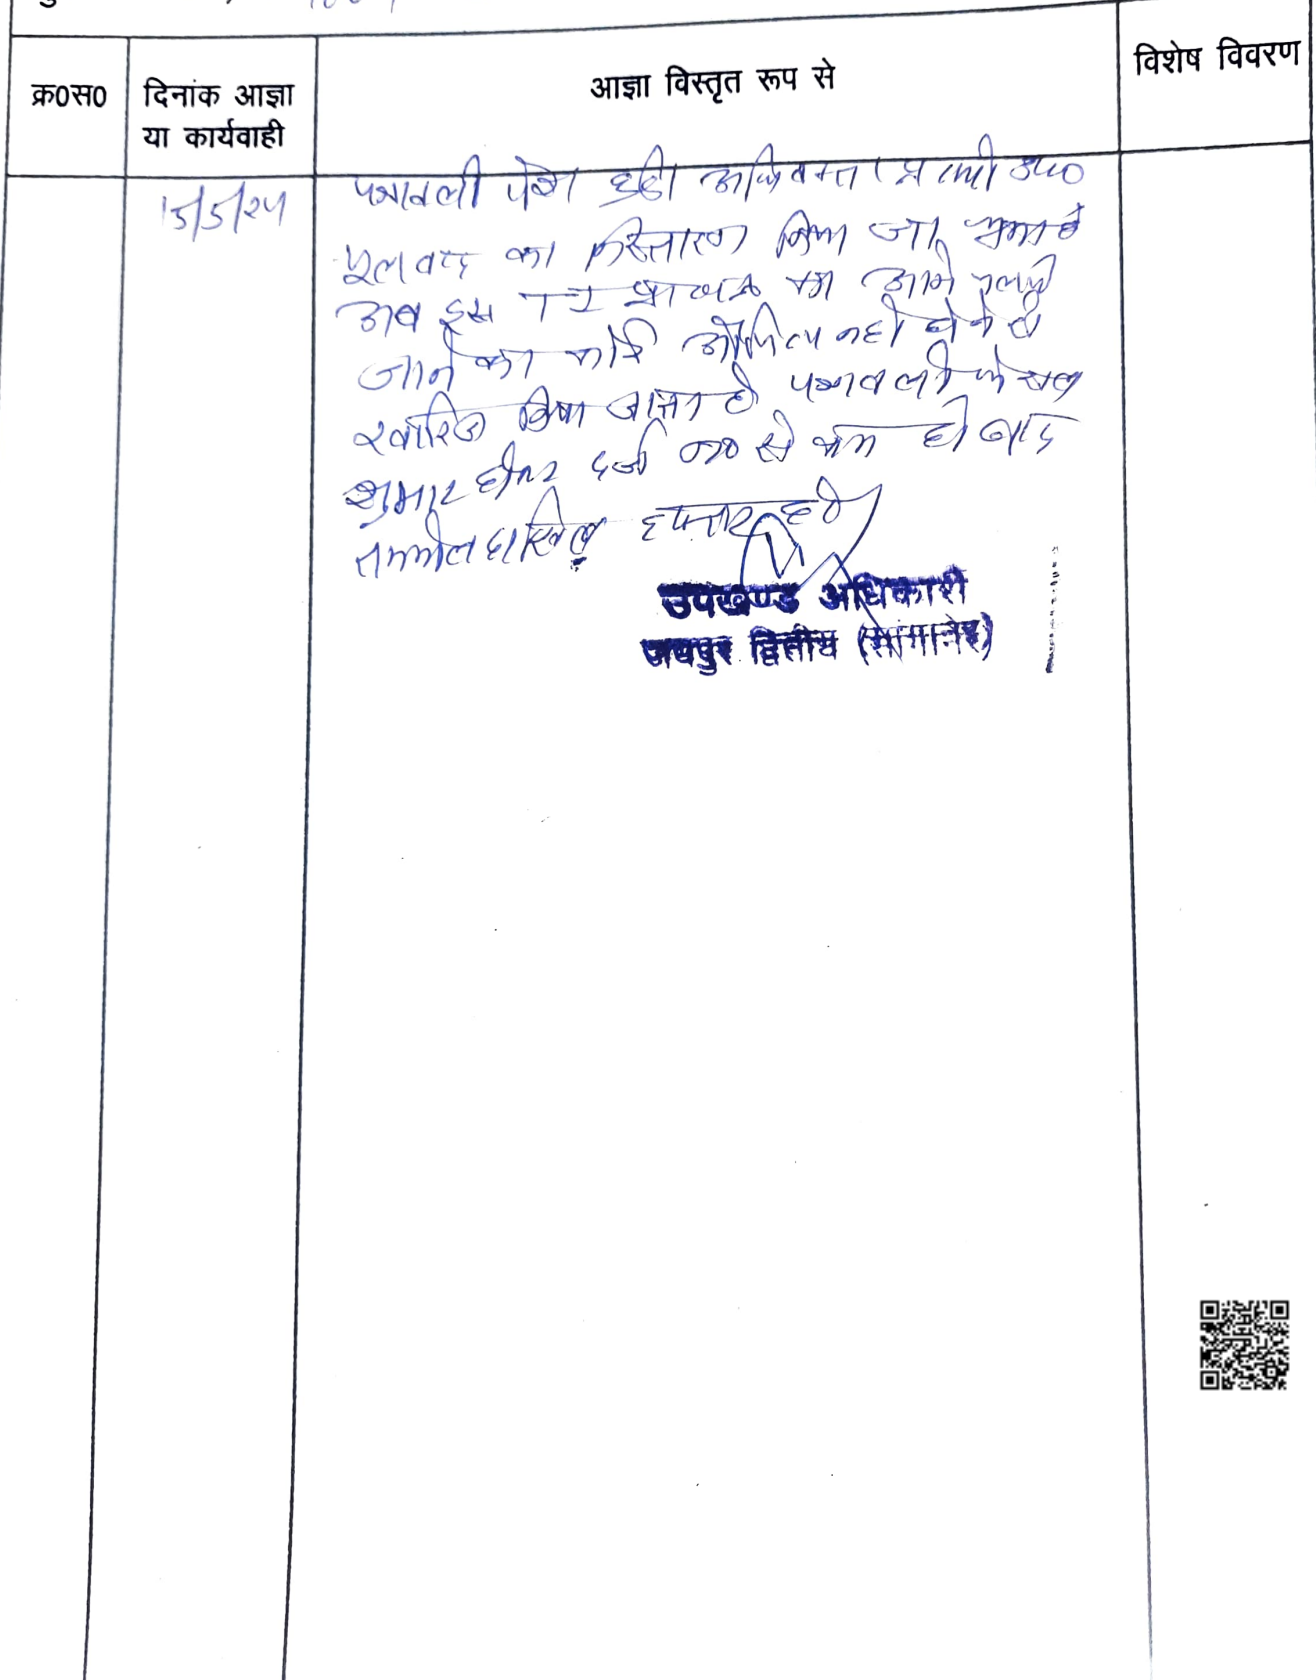 क्र0स0
दिनांक आज्ञा
या कार्यवाही
आज्ञा विस्तृत रूप से
विशेष विवरण
15/5/24
पत्रावली पेश हुई। अभिवक्ता प्रार्थी उप0
मूलवाद का निस्तारण किया जा चुका है
अब इस TI प्रा0पत्र का आगे चलाये
जाने का कोई औचित्य नही होने से
खारिज किया जाता है पत्रावली फैसल
शुमार होकर दर्ज न0 से कम हो बाद
तकमील दाखिल दफ्तर हो
उपखण्ड अधिकारी
जयपुर द्वितीय (सांगानेर)